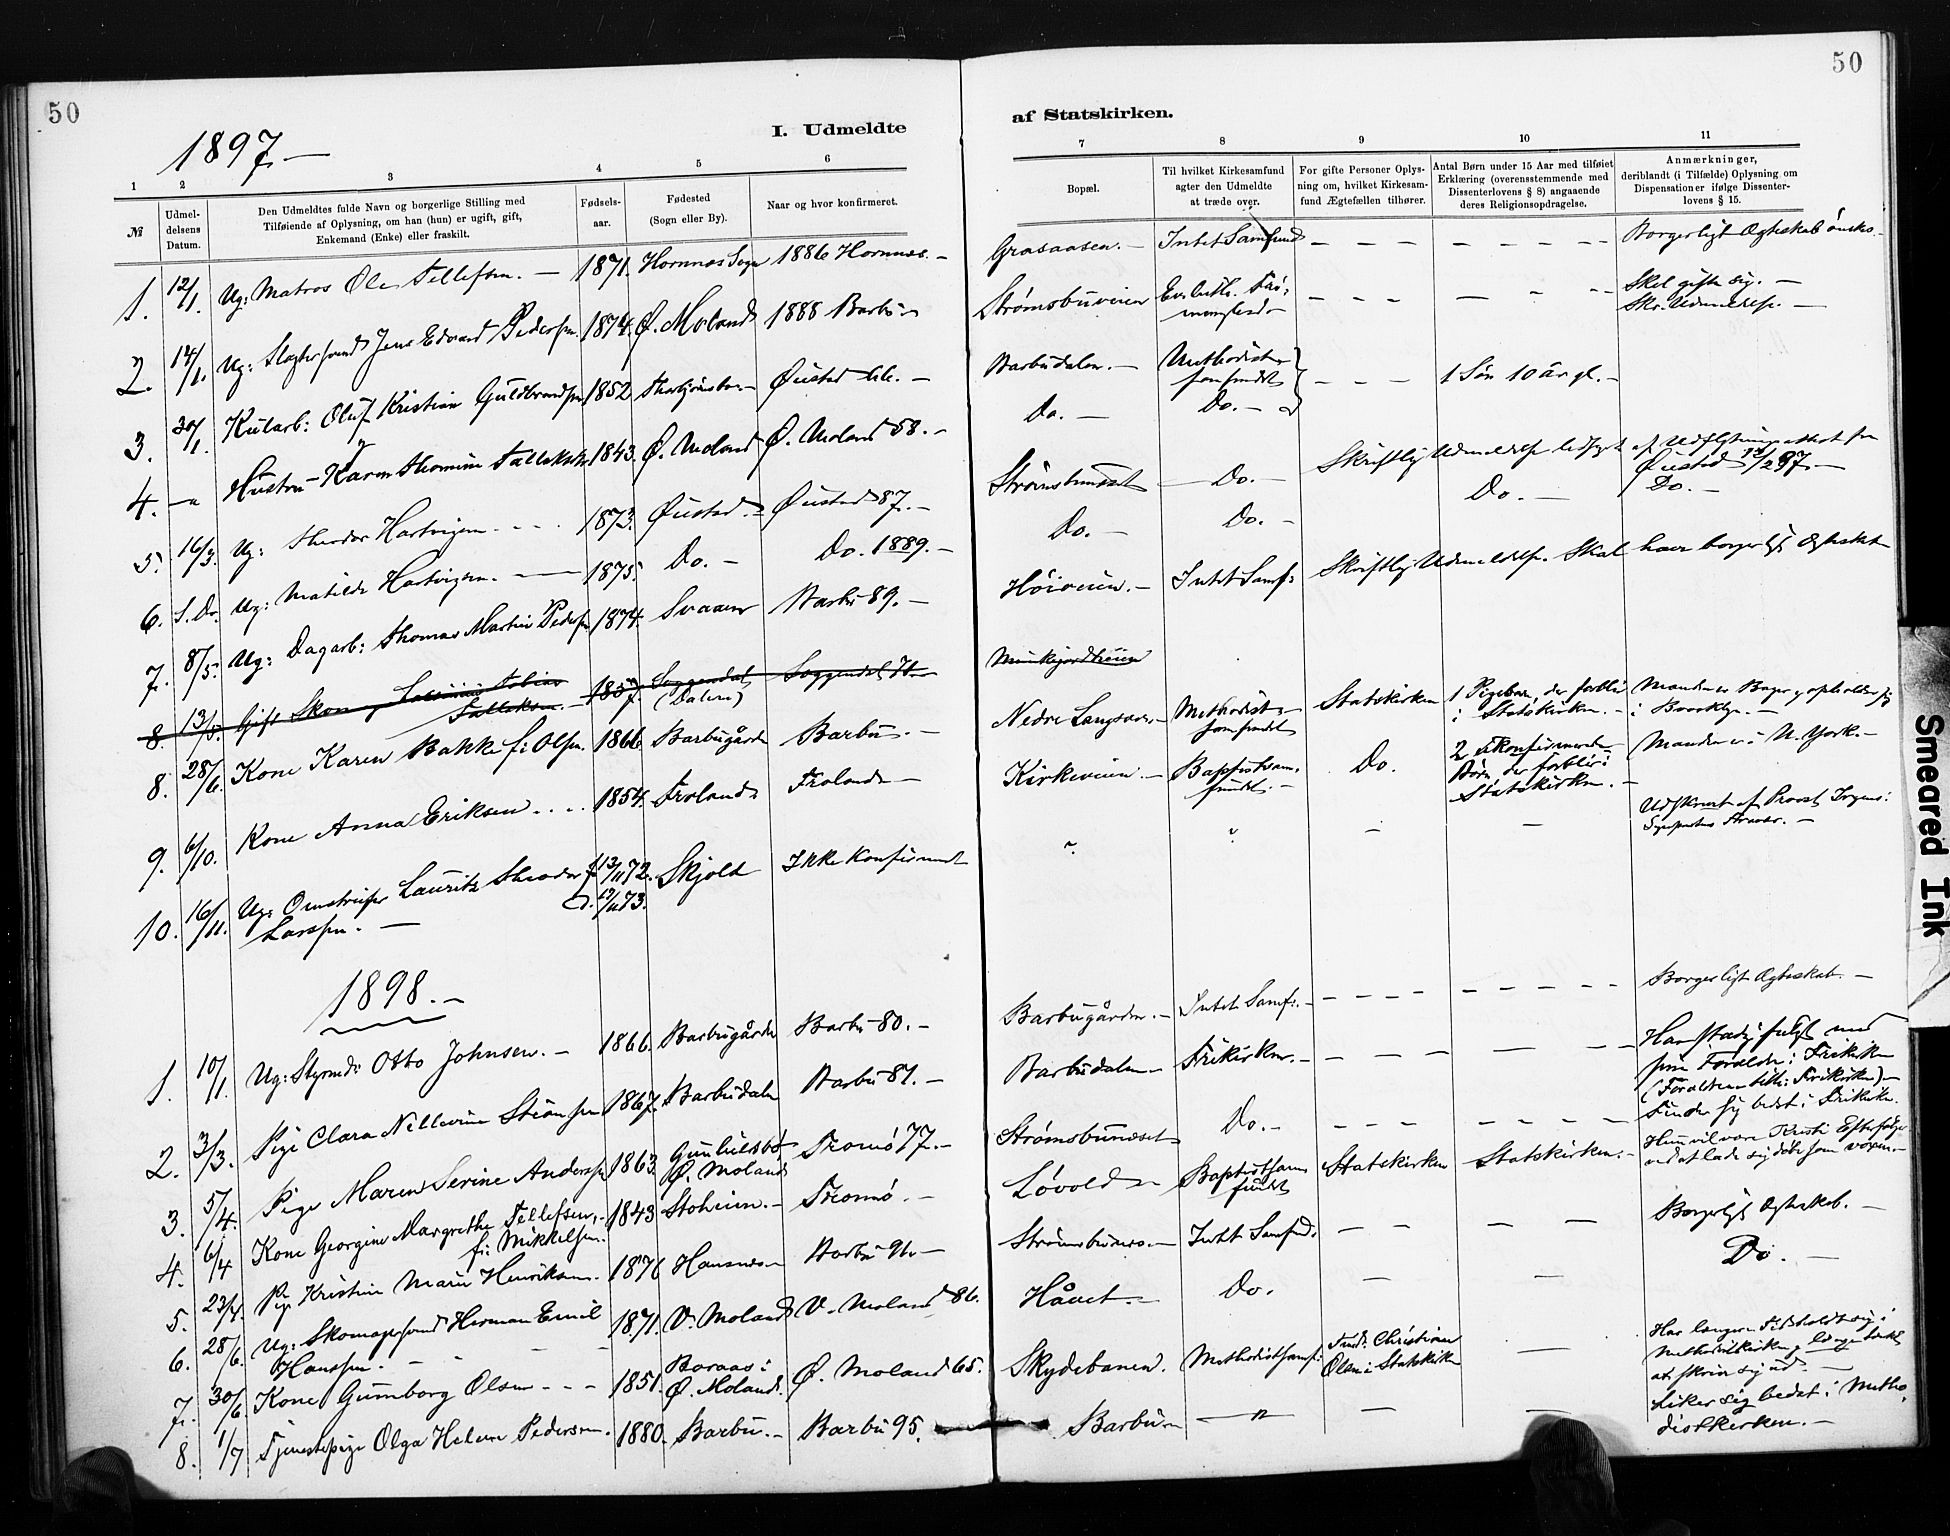 50
50
I. Udmeldte
af Statskirken.
1897.—
1
2
3
4
5
6
7
8
9
10
11
№
Udmel-
delsens
Datum.
Den Udmeldtes fulde Navn og borgerlige Stilling med
Tilføiende af Oplysning, om han (hun) er ugift, gift,
Enkemand (Enke) eller fraskilt.
Fødsels-
aar.
Fødested
(Sogn eller By).
Naar og hvor konfirmeret.
Bopæl.
Til hvilket Kirkesamfund
agter den Udmeldte
at træde over.
For gifte Personer Oplys-
ning om, hvilket Kirkesam-
fund Ægtefællen tilhører.
Antal Børn under 15 Aar med tilføiet
Erklæring (overensstemmende med
Dissenterlovens § 8) angaaende
deres Religionsopdragelse.
Anmærkninger,
deriblandt (i Tilfælde) Oplysning om
Dispensationer ifølge Dissenter-
lovens § 15.
1. 12/1. Ug: Matros Ole Tellefsen. — 1871. Hornnes Sogn 1886 Hornnes. — Grasaasen. — Intet Samfund – – – – – – – Borgerligt Ægteskab ønskes.
2. 14/1. Ug: Jens Edvard Pedersen. 1874. Ø. Moland 1888 Barbu — Strømsbuveien Ev. luth. Fri-
menighed — – – – — – – – Skal gifte sig. —
Skr. Udmeldelse. —
3. 30/1. Kularb: Oluf Kristian Guldbrandsen 1852 Øiestad — Barbudalen. — Methodist-
samfundet – – – 1 Søn 10 år gl. —
4. —"— Hustru — Karen Thomine 1843. Ø. Moland Ø. Moland 58. — Do. — Do. —
5. 16/3. Ug: Theodor Hartvigsen. – – – 1873. Øiestad. — Øiestad 87. — Strømsbunesset — Do. — Skriftlig Udmeldelse ledsaget af Udflytningsattest fra
Øiestad
6. S. Do. Ug: Matilde Hartvigsen. — 1875. Do. — Do. 1889. — Do. — Do. — Do. — Do. —
7. 8/5. Ug: Dagarb: Thomas Martin Pedersen 1874. Barbu 89. — Høiveien. — Intet Samf: Skriftlig Udmeldelse. Skal have borgerligt Ægteskab
8. 13/5. Gift Skom. Tobias
Tallaksen. — 1857. Soggendal
(Dalene) Soggendal
8. 28/6. Kone Karen Bakke f: Olsen. 1866 Barbugården Barbu. — Nedre Langsæe. — Methodist-
samfundet Statskirken 1 Pigebarn, der forbliver
i Statskirken. — Manden er Bager og opholder sig
i Brooklyn. —
9. 6/10. Kone Anna Eriksen . . . 1854. Froland. Froland — Kirkeveien. — Baptistsam-
fundet. — Do. 2 ukonfirmerede
Børn, der forbliver i
Statskirken. — Manden er i N. York. —
10. 16/11. Ug: Lauritz Theodor
Larssen. — f. 13/11 72.
D. 73. Skjold Ikke konfirmeret " " — — Udskrevet af Provst
1898.—
1. 10/1. Ug: Styrmd: Otto Johnsen. — 1866. Barbugården Barbu 80. — Barbugården. — Intet Samf:. — – – – – – – – – – Borgerligt Ægteskab. —
2. 3/3. Pige Clara Nillevine Steensen 1867. Barbudalen Barbu 81. — Barbudalen — Frikirken. — – – – – — — — Har stadig fulgt med
sine Forældre i Frikirken
Finder sig bedst i Frikirken.
3. 5/4. Pige Maren Serine Anderssen 1863. Gunhildsbø
Ø. Moland Tromø 77. — Strømsbunesset Do. — – – – – – – – – Hun vil være Kristi Efterfølger
ved at lade sig døbe som voxen. —
4. 6/4 Kone Georgine Margrethe Tellefsen,
f: Mikkelsen. 1843 Stoheien. — Tromø. — Løvold — Baptistsam-
fundet Statskirken Statskirken. —
5. 23/4. Pige Kristine Marie Henriksen. 1876 Hansnes — Barbu 91. — Strømsbunes. — Intet Samfund. — — — — Borgerligt Ægteskab. —
6. 28/6. Ug: Skomagersvend Herman Emil
Hanssen. — 1871. V. Moland V. Moland 86. Håvet. — Do. — — Do. —
7. 30/6 Kone Gumborg Olsen – – – 1851. Boraas i
Ø. Moland. Ø. Moland 65. Skydebanen. Methodistsamf: Christian
Olsen i Statskirken Har længere Tid holdt sig i
Methodistkirken, længe tænkt
at skrive sig ud. —
8. 1/7 Tjenestepige Olga Helene Pedersen. 1880. Barbu. — Barbu 95. — Barbu — —"— — — Liker sig bedst i Metho-
distkirken. —
Smeared Ink